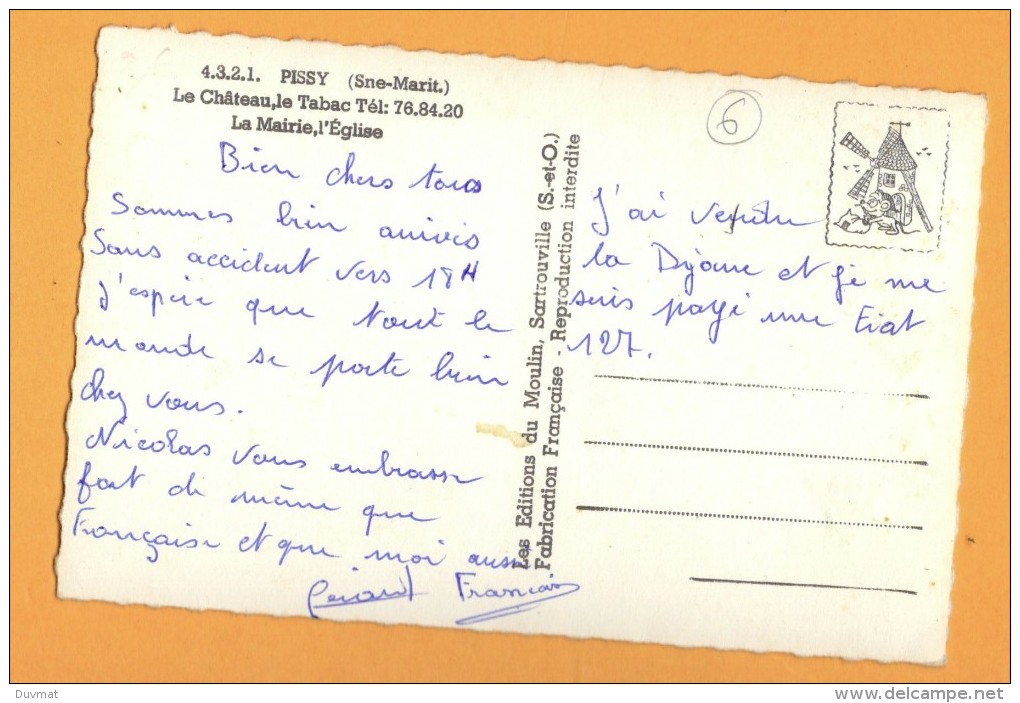 4.3.2.1. PISSY (Sne-Marit.)
Le Château,le Tabac Tél: 76.84.20
La Mairie,l'Église
Bien chers tous
Sommes bien arrivés
Sans accident vers 18H
j'espère que tout le
monde se porte bien
chez vous.
Nicolas vous embrasse
fort de même que
Françoise et que moi aussi
Gérard Francoise
Les Editions du Moulin, Sartrouville (S.-et-O.)
Fabrication Française - Reproduction interdite
6
J'ai vendu
la Dyane et je me
suis payé une Fiat
127.
Duvmat
www.delcampe.net